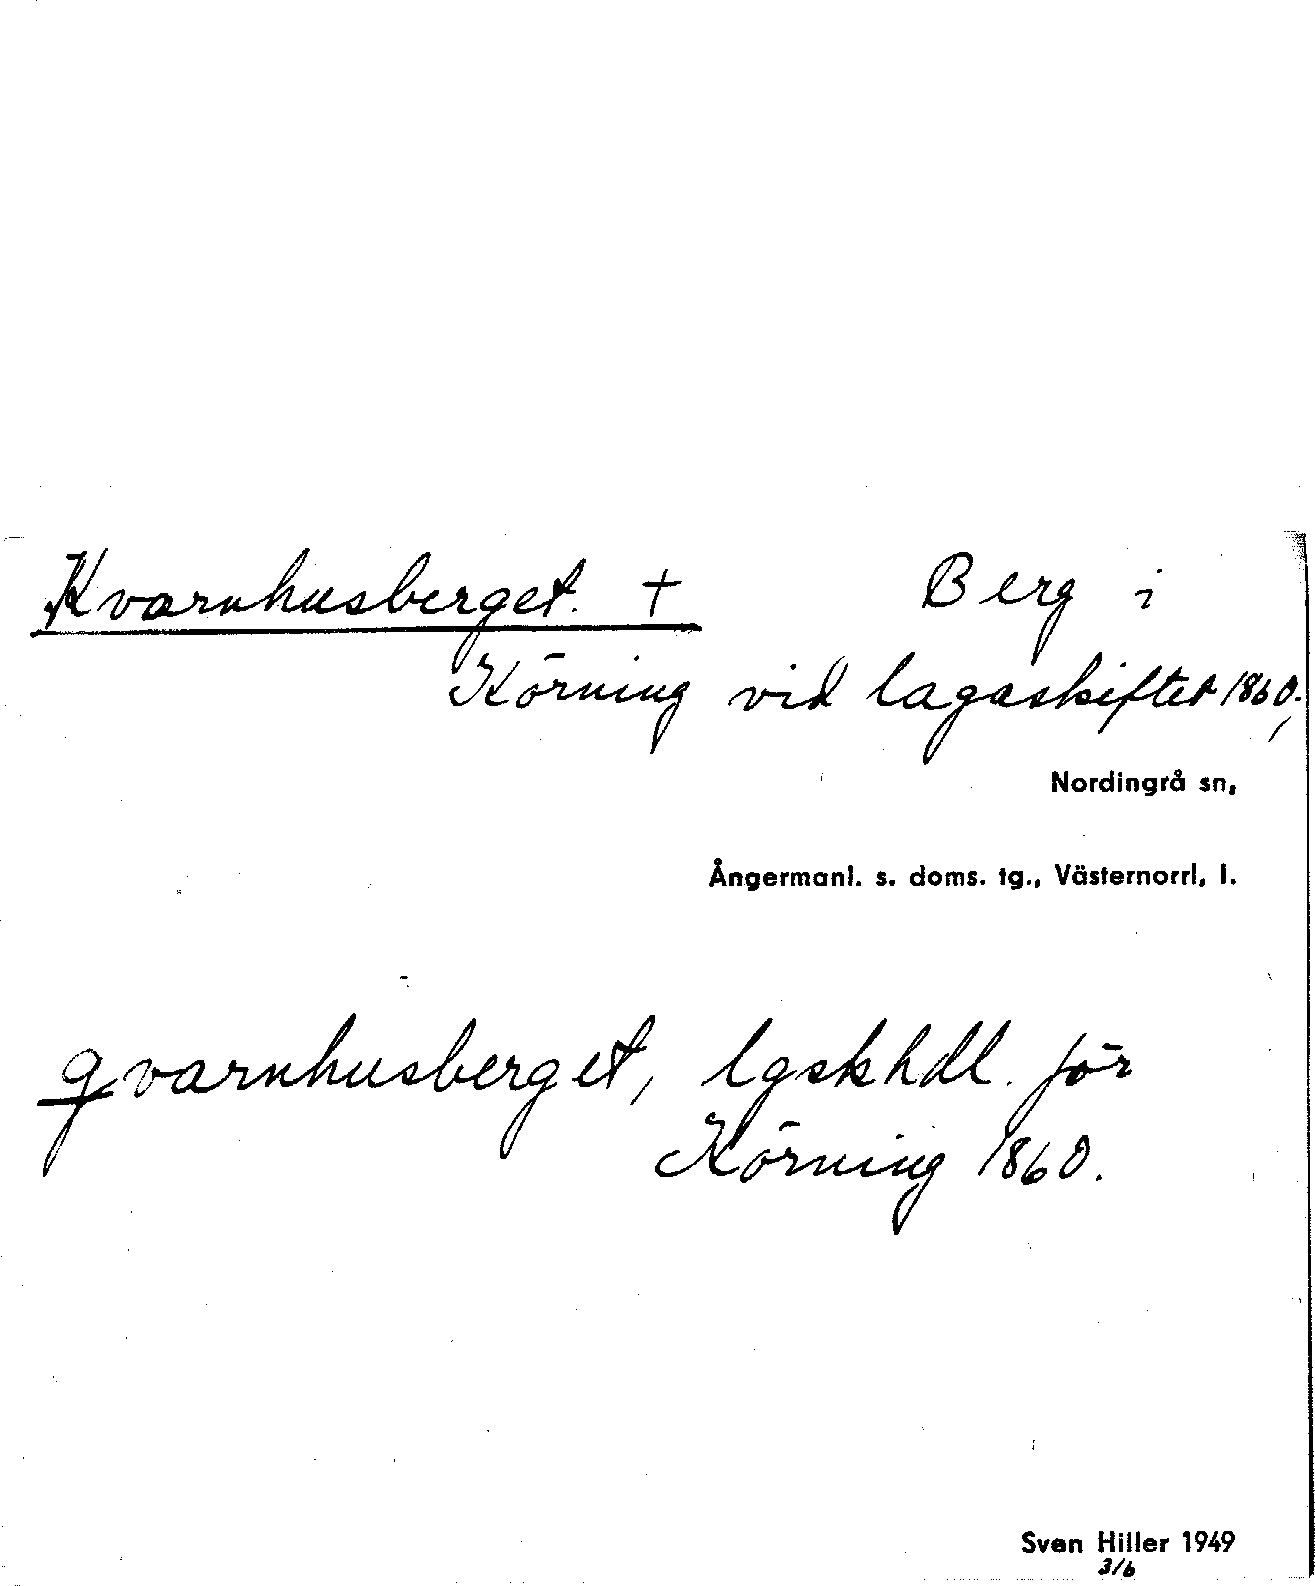 Kvarnhusberget. + Berg i
Körning vid lagaskiftet 1860.,
Nordingrå sn,
Ångermanl. s. doms. tg., Västernorrl, l.
qvarnhusberget, lgskhdl. för
Körning 1860.
Sven Hiller 1949
3/6